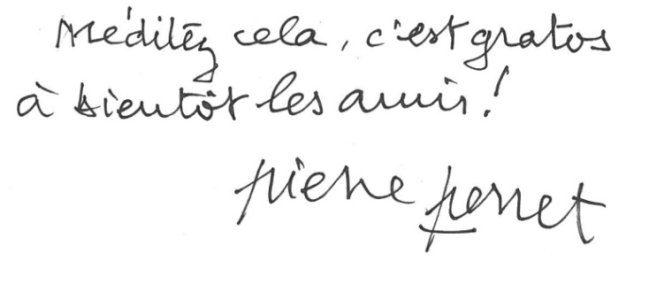 Méditez cela, c'est gratos
à bientôt les amis!
pierre perret